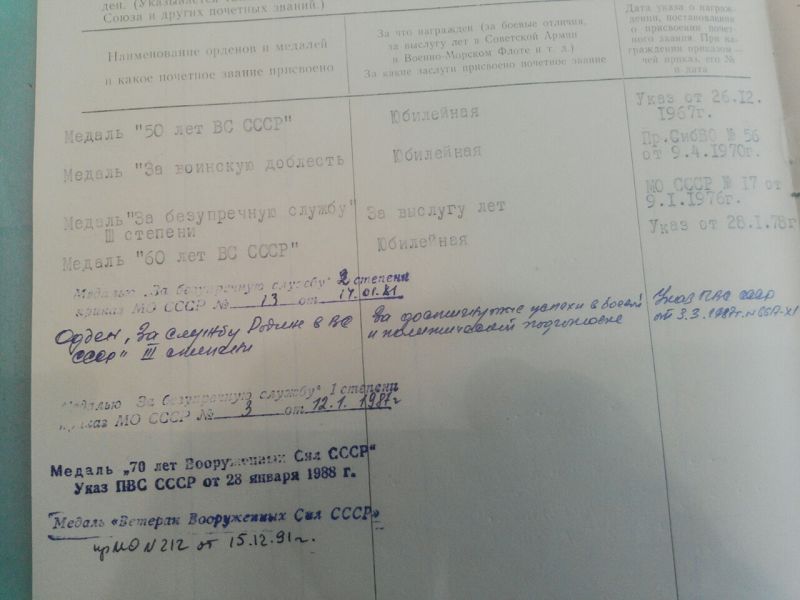 ден. (Указывается
Союза и других почетных званий.)
Наименование орденов и медалей
и какое почетное звание присвоено
За что награжден (за боевые отличия,
за выслугу лет в Советской Армии
и Военно-Морском Флоте и т. д.)
За какие заслуги присвоено почетное звание
Дата указа о награж-
дении, постановления
о присвоении почет-
ного звания. При на-
граждении приказом —
чей приказ, его №
и дата
Медаль "50 лет ВС СССР"
Юбилейная
Указ от 26.12.
1967г.
Медаль "За воинскую доблесть
Юбилейная
Пр.СибВО № 56
от 9.4.1970г.
Медаль "За безупречную службу"
III степени
За выслугу лет
МО СССР № 17 от
9.I.1976г.
Медаль "60 лет ВС СССР"
Юбилейная
Указ от 28.1.78г
Медалью „За безупречную службу" 2 степени
приказ МО СССР № 13 от 17.01.81
Орден „За службу Родине в ВС
СССР" III степени
За достигнутые успехи в боевой
и политической подготовке
Указ ПВС СССР
от 3.3.1987г.
Медалью „За безупречную службу" 1 степени
приказ МО СССР № 3 от 12.1.1987г
Медаль „70 лет Вооруженных Сил СССР"
Указ ПВС СССР от 28 января 1988 г.
Медаль «Ветеран Вооруженных Сил СССР»
пр МО N 212 от 15.12.91г.